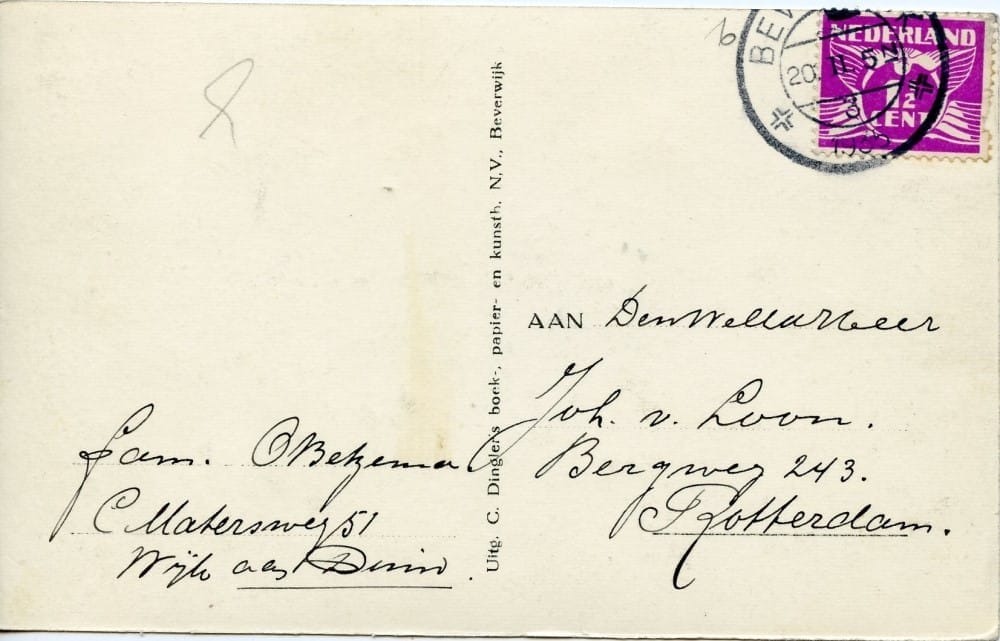 Fam. O Betzema
C Matersweg 51
Wijk aan Duin.
Uitg. C. Dinglers boek-, papier- en kunsth. N.V., Beverwijk
NEDERLAND
1½
CENT
BEV
20. II. 5N
3
1935
AAN Den Weled. Heer
Joh. v. Loon.
Bergweg 243.
Rotterdam.